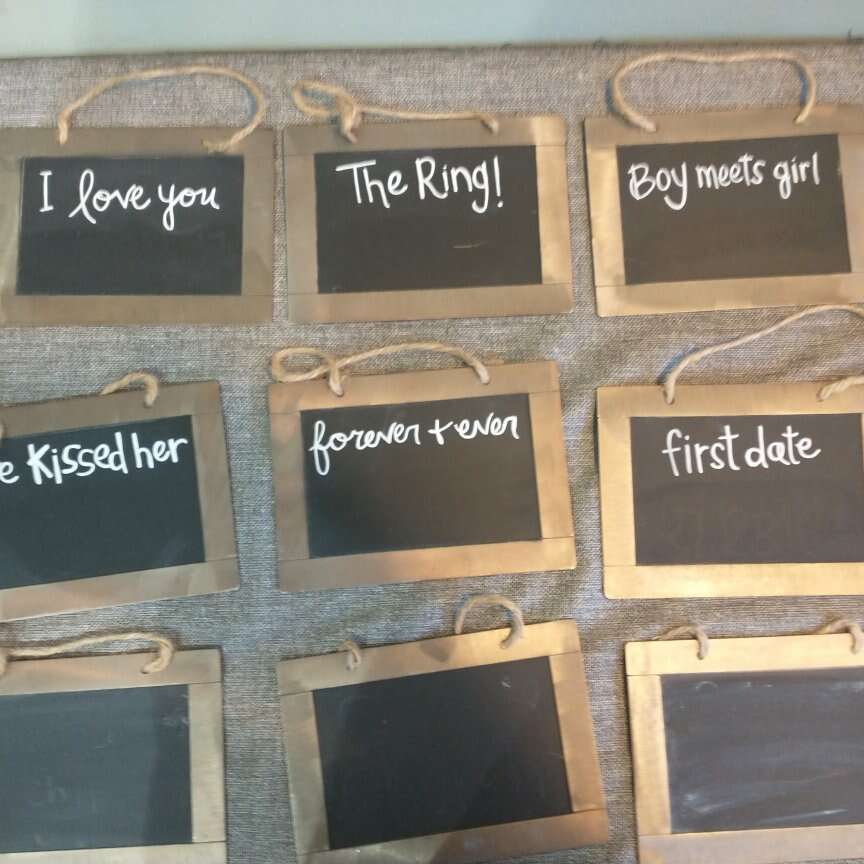 I love you
The Ring!
Boy meets girl
e Kissed her
forever + ever
first date